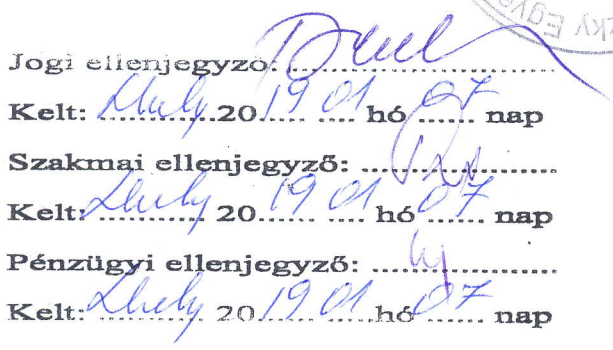 zky Egye
Jogi ellenjegyző: ..............................
Kelt: ............ 20 19 01 hó 07 nap
Szakmai ellenjegyző: ......................
Kelt: ............ 20 19 01 hó 07 nap
Pénzügyi ellenjegyző: .....................
Kelt: ............ 20 19 01 hó 07 nap